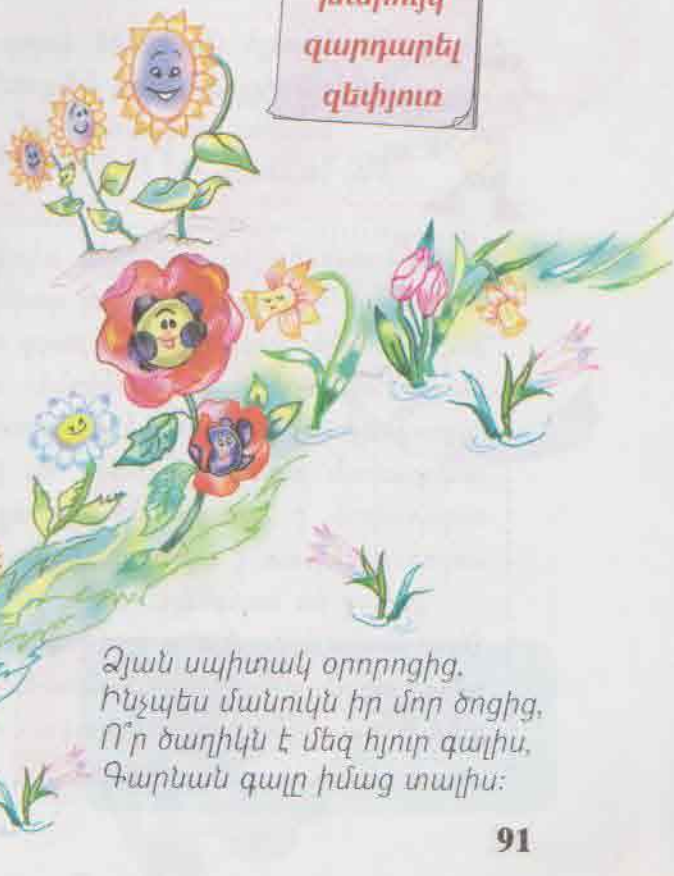 զարդարել
զեփյուռ
Ձյան սպիտակ օրորոցից.
Ինչպես մանուկն իր մոր ծոցից,
Ո՞ր ծաղիկն է մեզ հյուր գալիս,
Գարնան գալը իմաց տալիս:
91